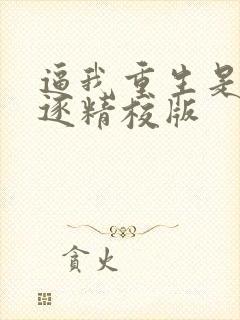 逼我重生是
逐精校版
贪火